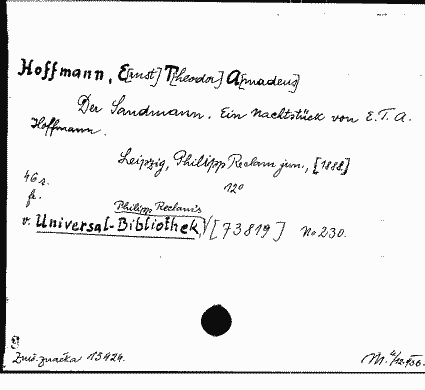 Hoffmann, E[rnst] T[heodor] A[madeus]
Der Sandmann. Ein Nachtstück von E.T.A.
Hoffmann.
Leipzig, Philipp Reclam jun., [1888]
46 s. 12°
fr.
Philipp Reclam's
v. Universal-Bibliothek [73819] No 230.
15424.